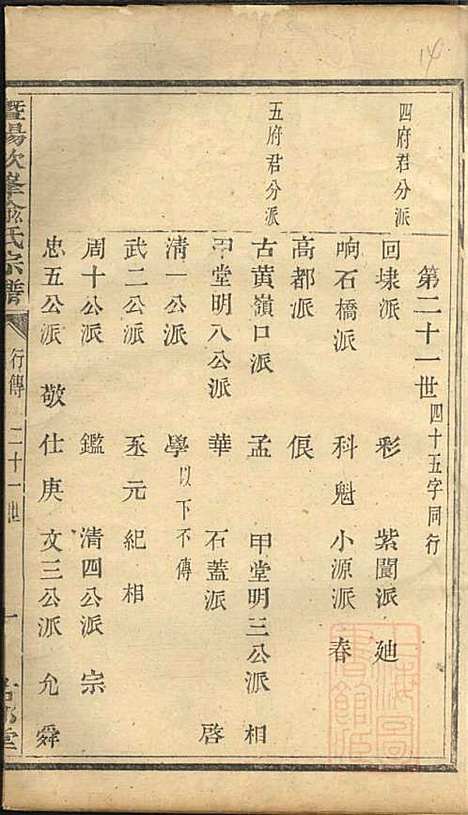 14
第二十一世 四十五字同行
四府君分派
回埭派 彩 紫閬派 廸
响石橋派 科魁 小源派 春
高都派 㑗
五府君分派
古黄嶺口派 孟 甲堂明三公派 相
甲堂明八公派 華 石蓋派 啓
清一公派 學 以下不傳
武二公派 丞元紀相
周十公派 鑑 清四公派 宗
忠五公派 敬仕庚 文三公派 允舜
暨陽次峯俞氏宗譜
行傳 二十一世
一